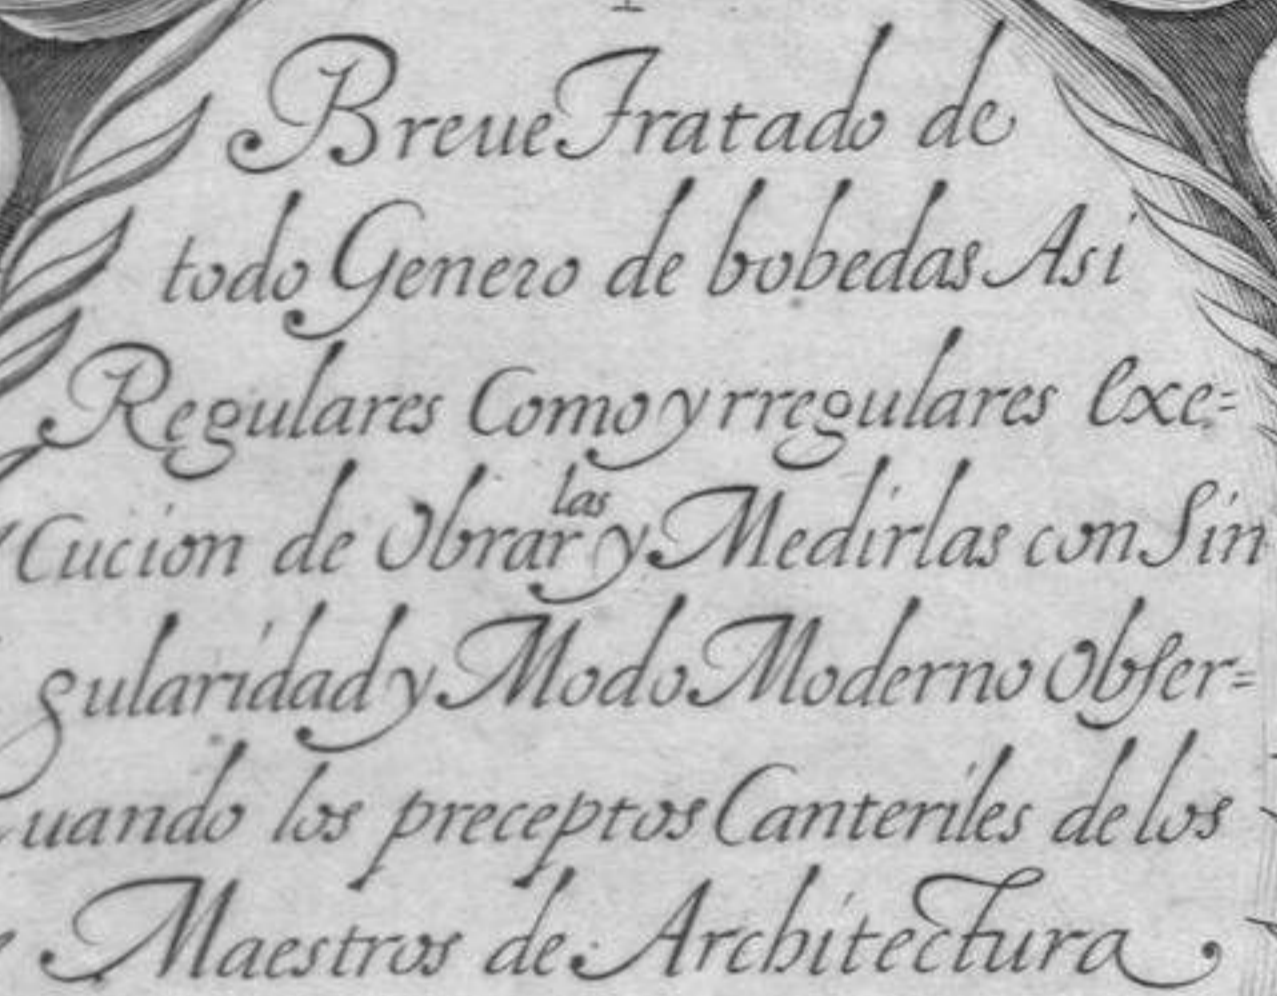 Breue Tratado de
todo Genero de bobedas Asi
Regulares Como yrregulares exe=
Cucion de Obrarlas y Medirlas con Sin
gularidad y Modo Moderno Obſer=
uando los preceptos Canteriles de los
Maestros de Architectura